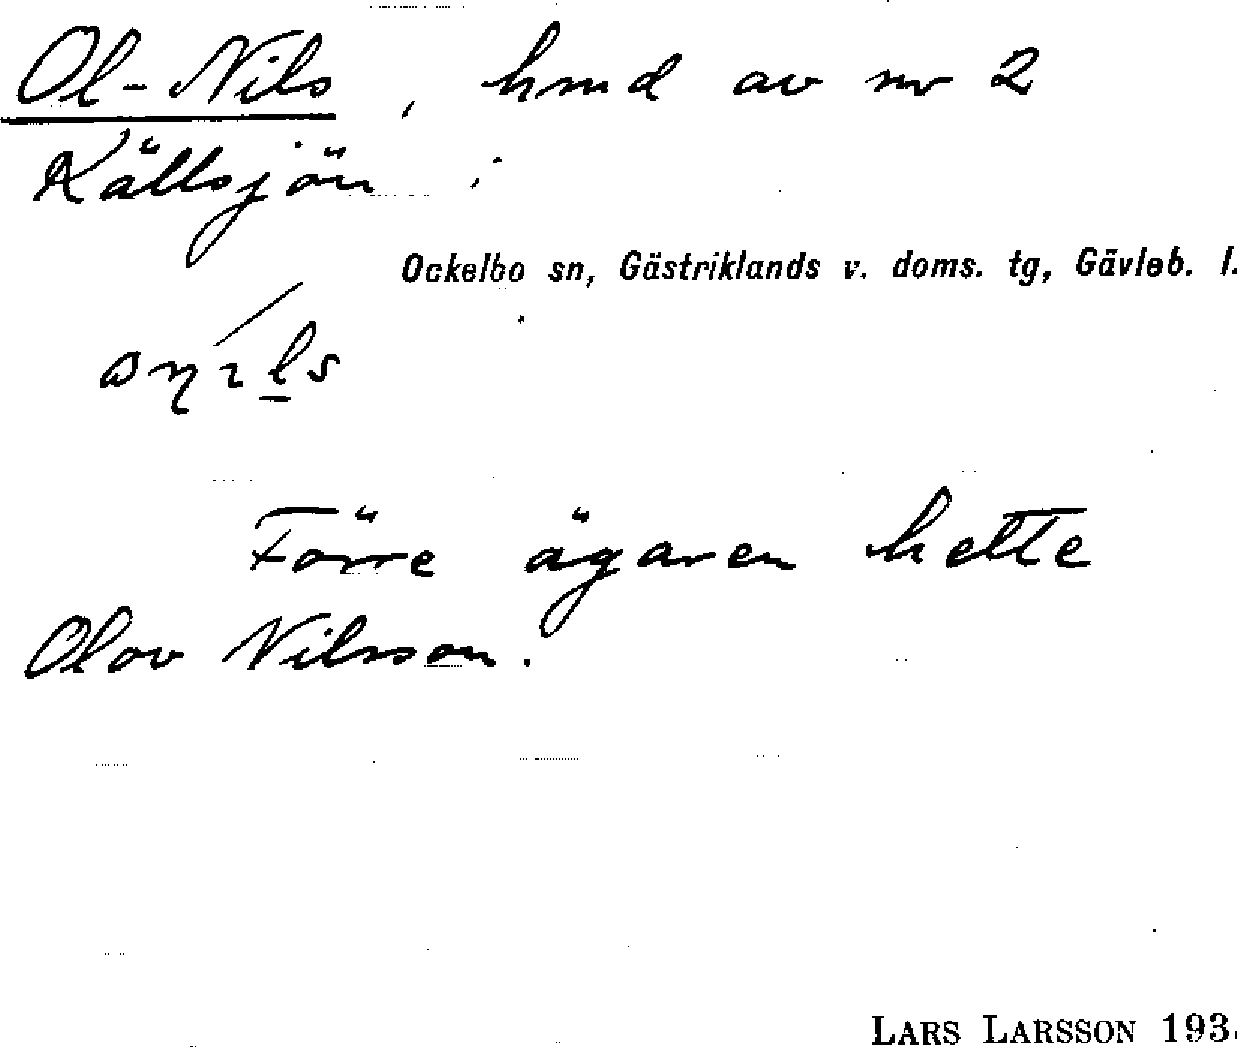 Ol-Nils, hmd av nr 2
Källsjön i
Ockelbo sn, Gästriklands v. doms. tg, Gävleb. l.
Förre ägaren hette
Olov Nilsson.
LARS LARSSON 193